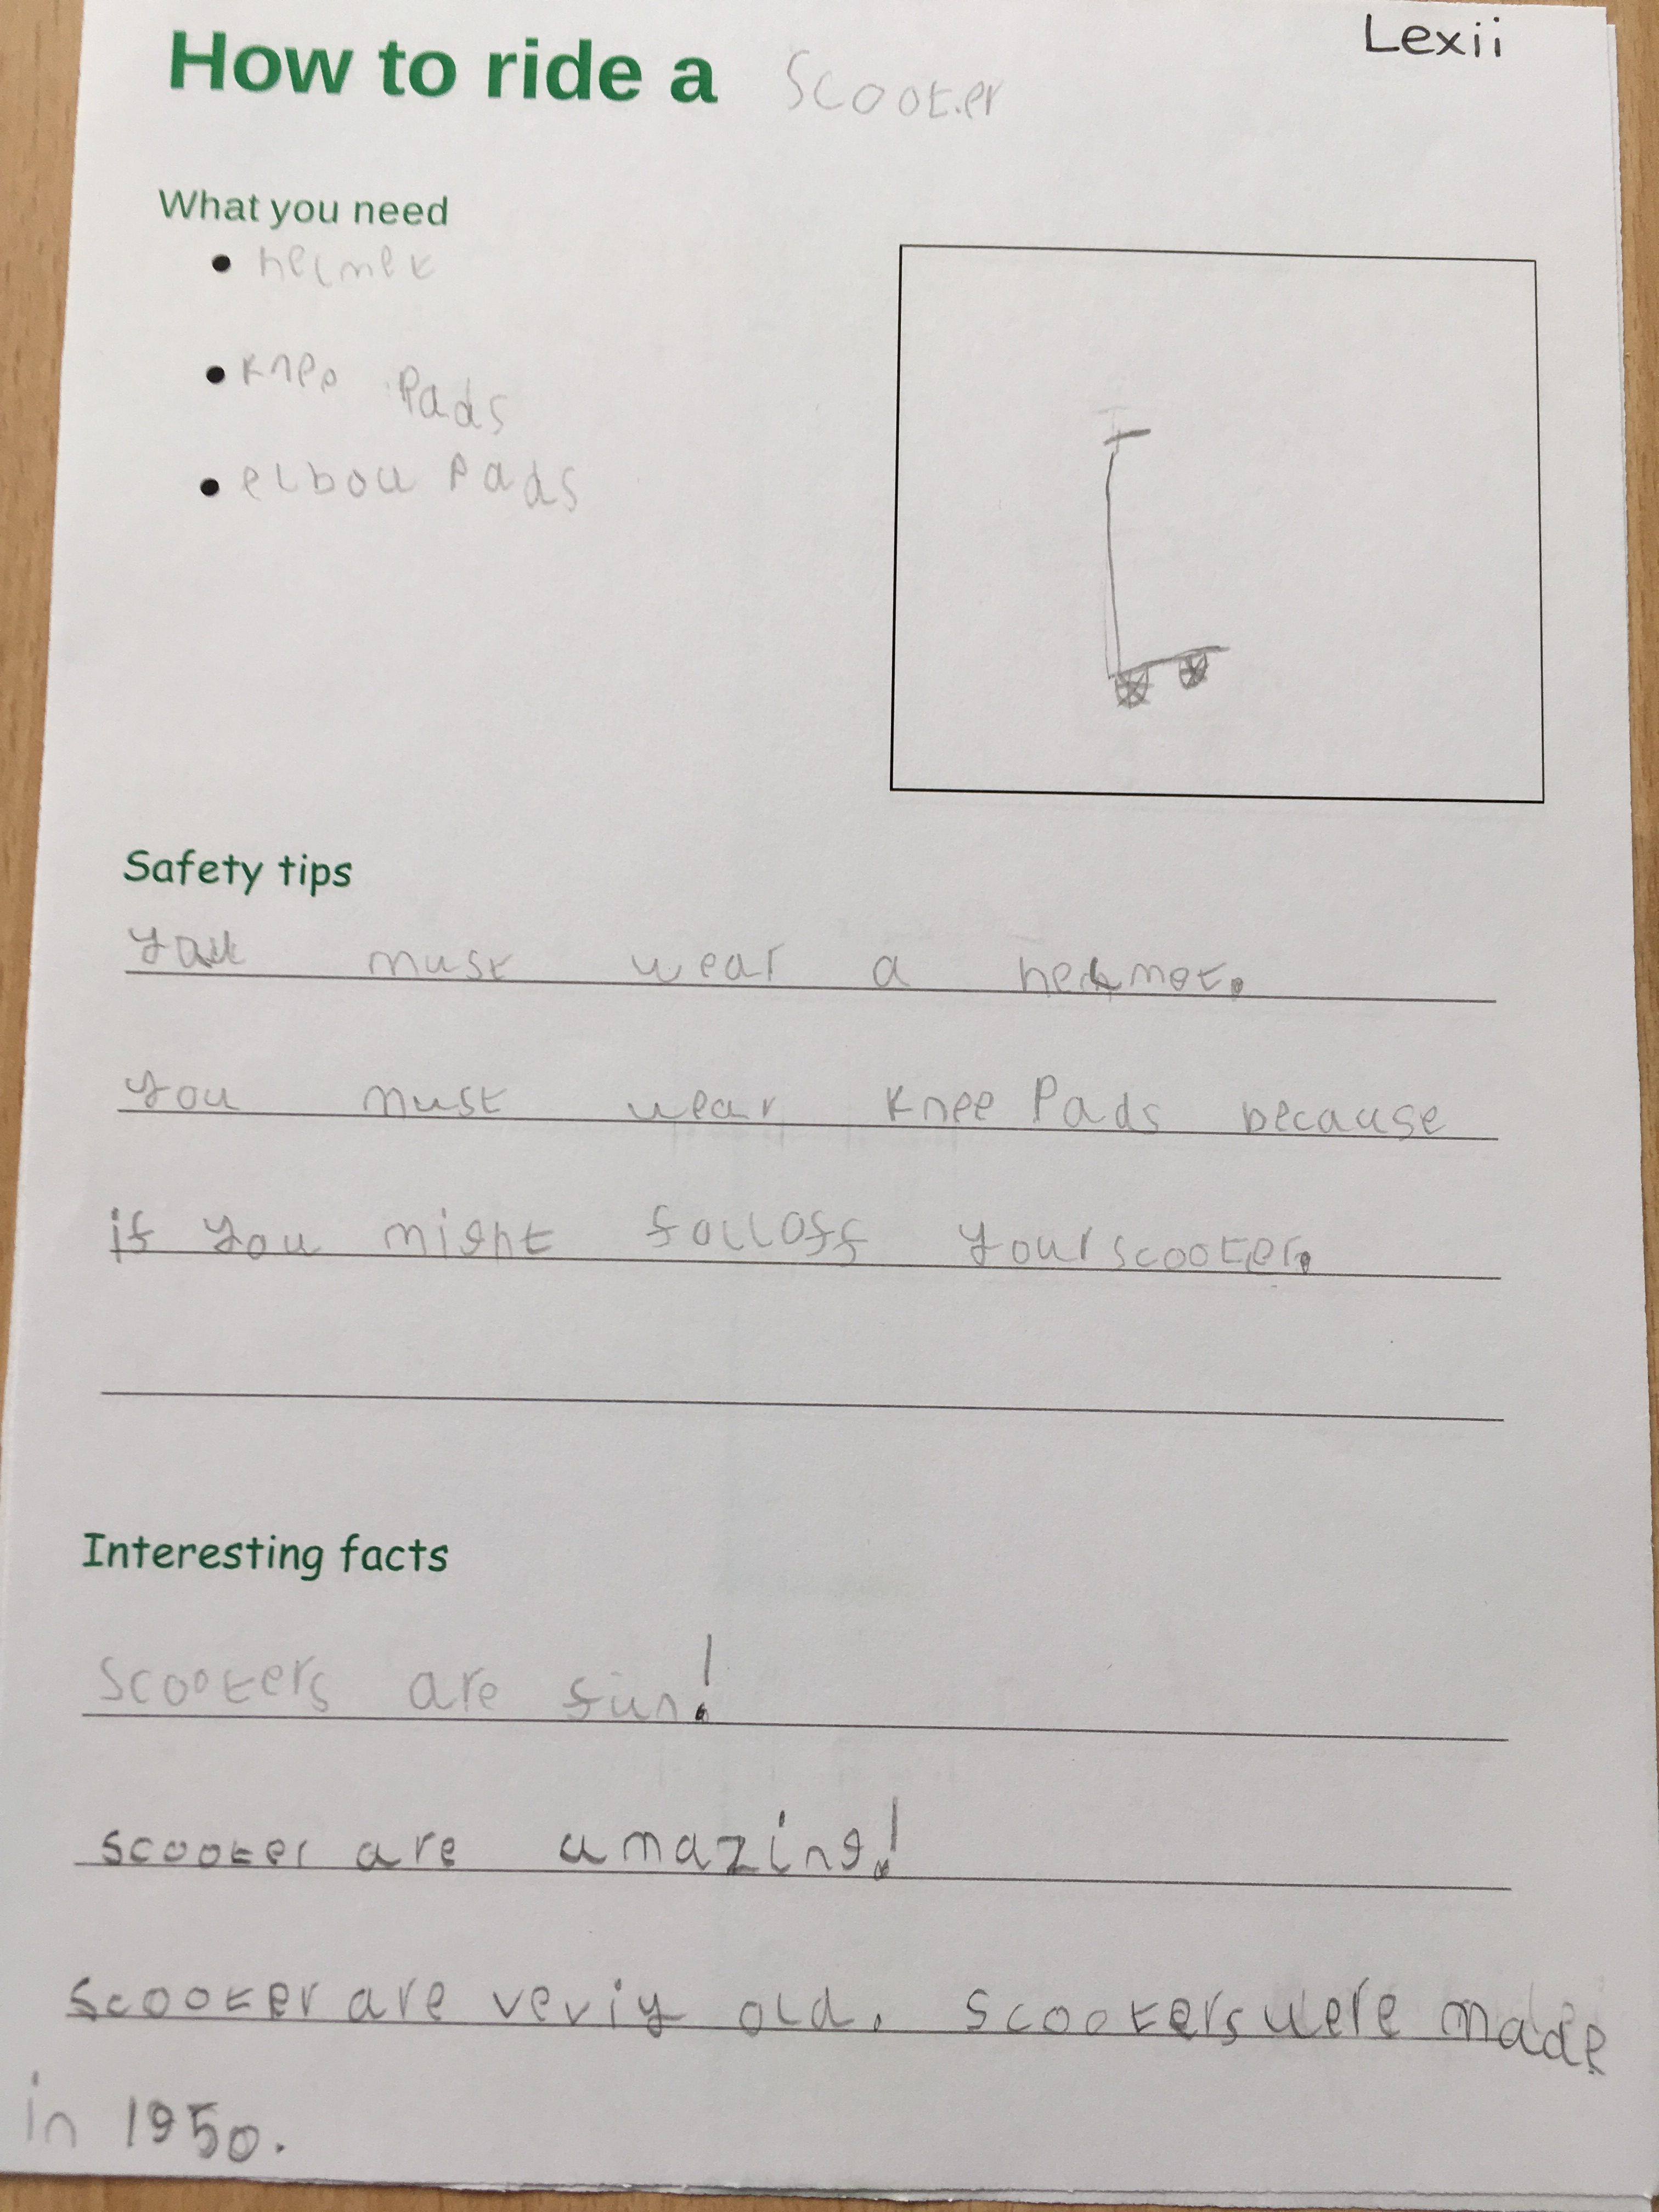 Lexii
How to ride a Scooter
What you need
• helmet
• knee Pads
• elbou Pads
Safety tips
You must wear a helmet.
you must wear knee Pads because
if you might falloff your scooter.
Interesting facts
Scooters are fun!
scooter are amazing!
scooter are veriy old. scooters were made
in 1950.